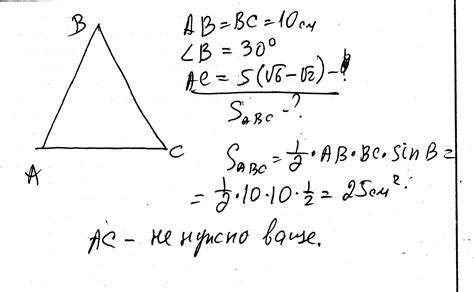 B
A
C
AB=BC=10см
∠B = 30°
AC = 5(√6-√2) -
S_ABC - ?
S_ABC = 1/2 · AB · BC · sin B =
= 1/2 · 10 · 10 · 1/2 = 25см².
AC - не нужно ваще.